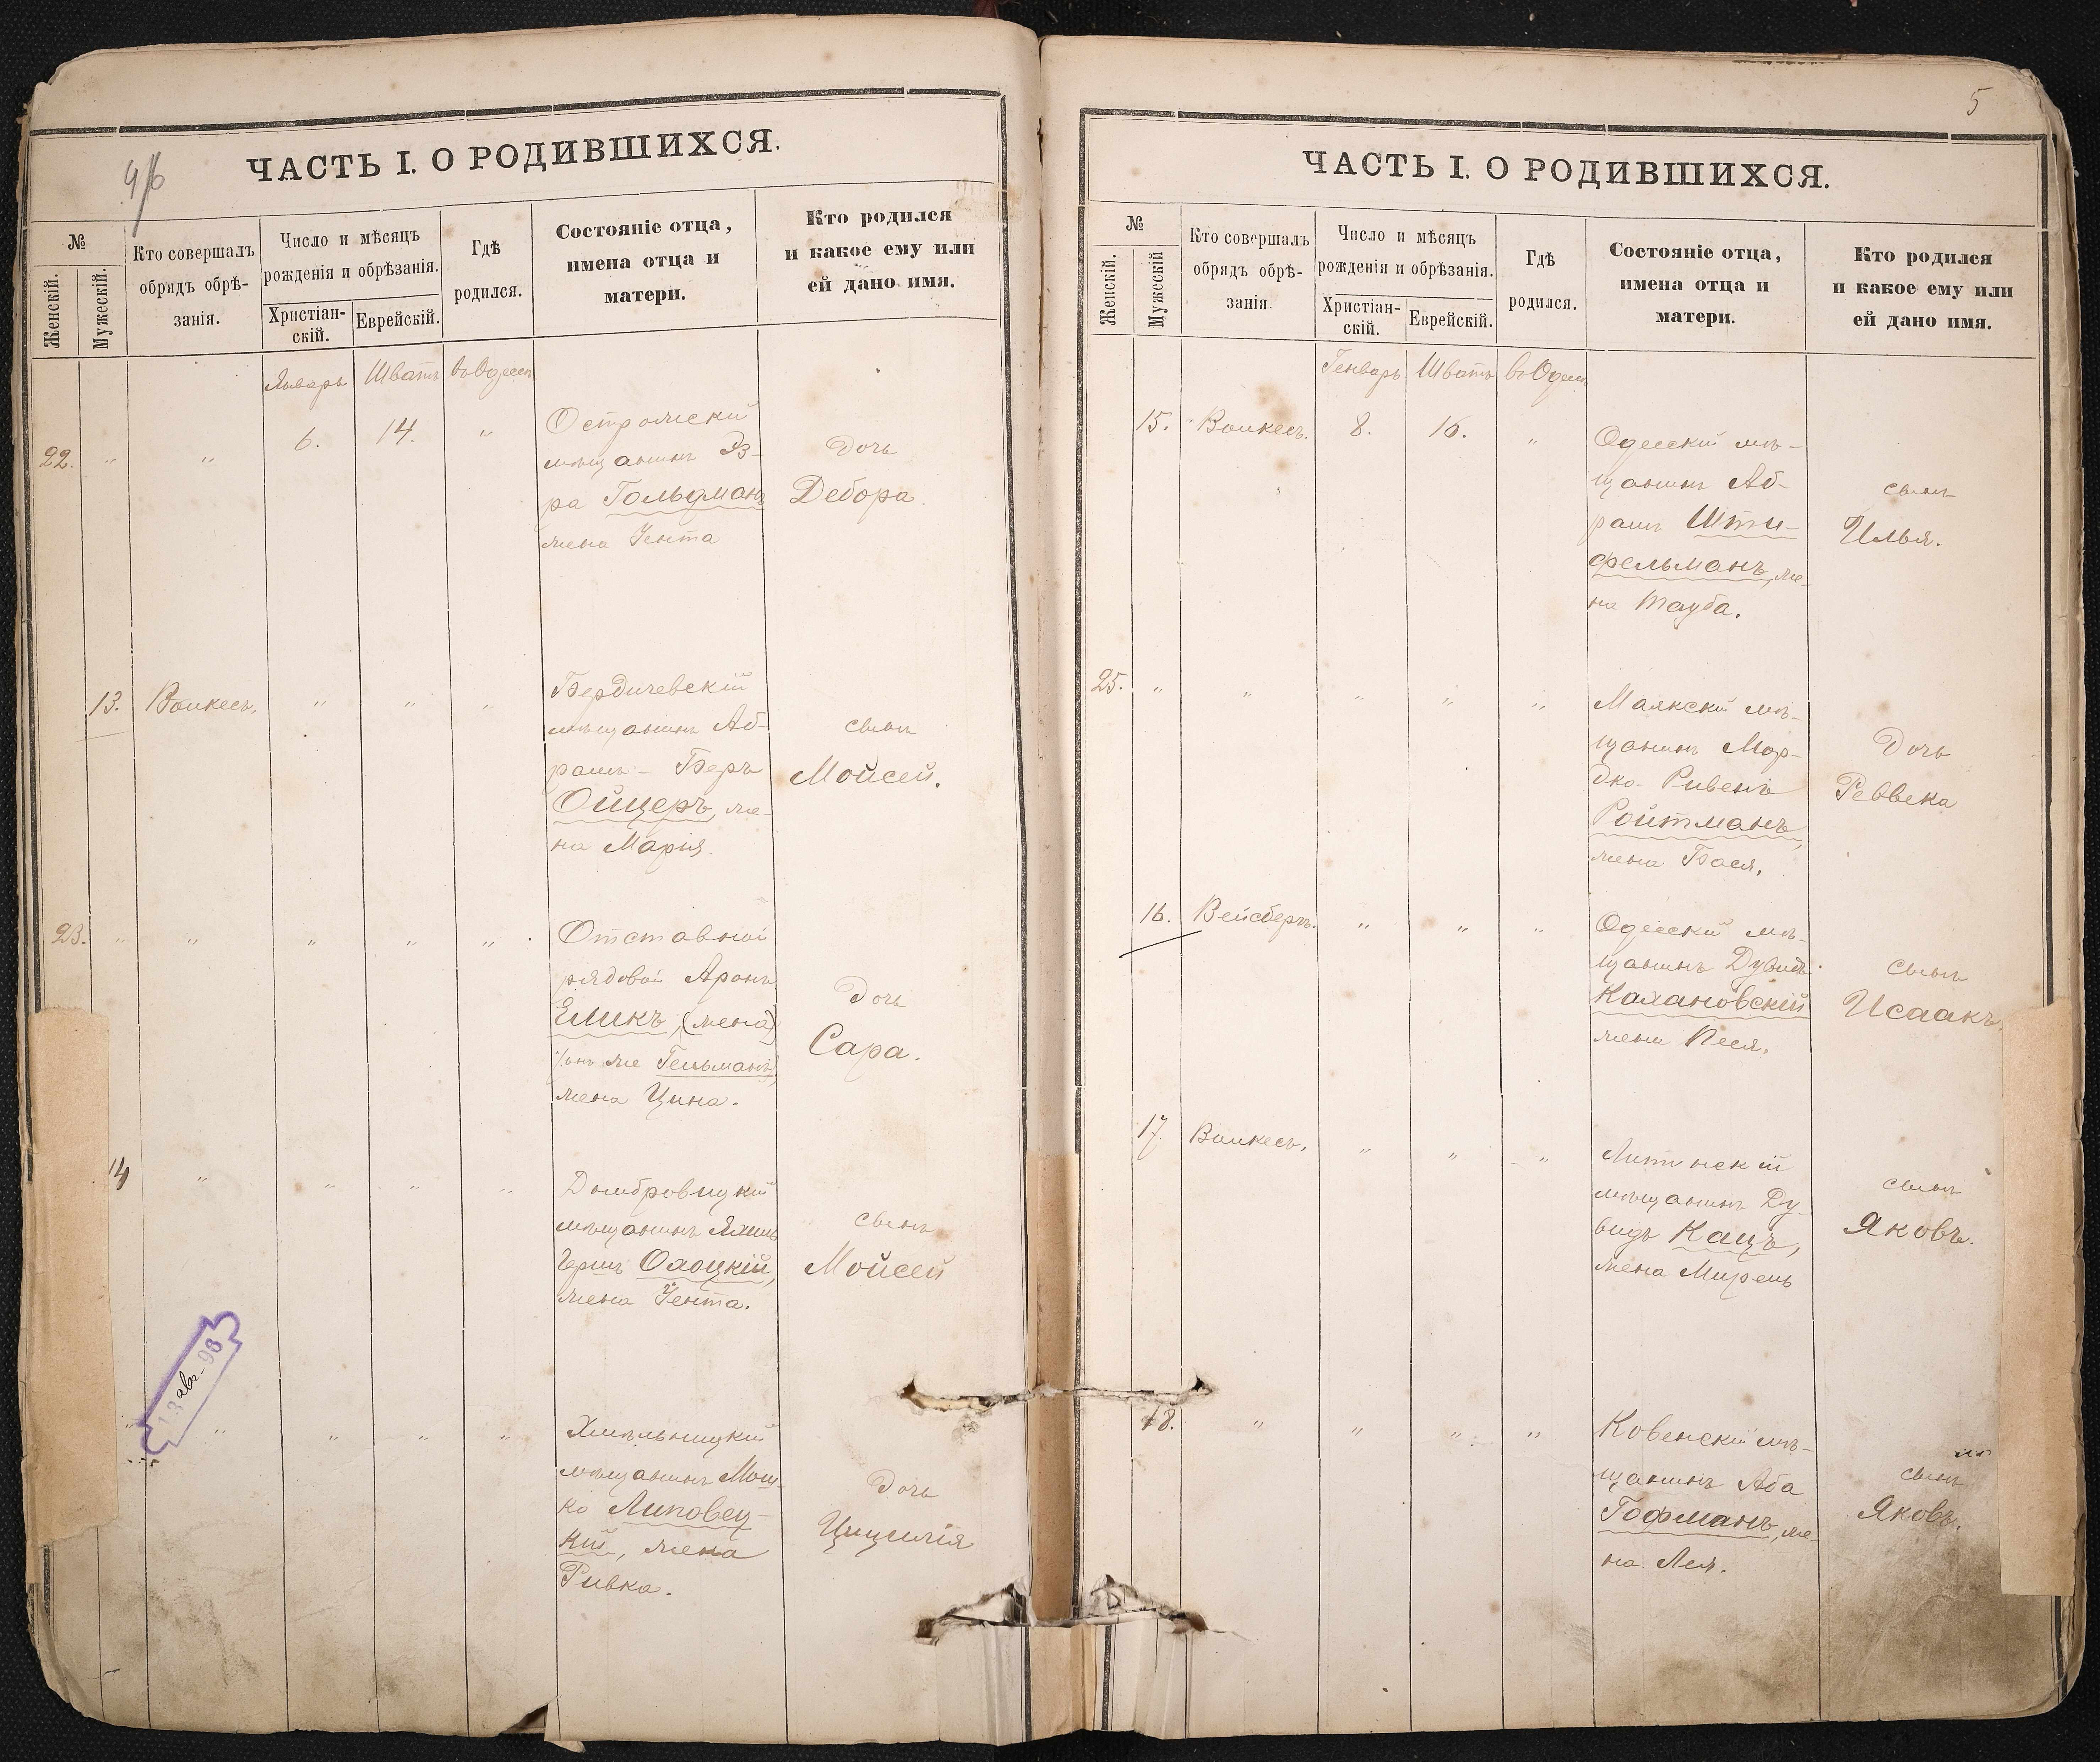 ЧАСТЬ I. О РОДИВШИХСЯ.
№
Женскій.
Мужескій.
Кто совершалъ
обрядъ обрѣ-
занія.
Число и мѣсяцъ
рожденія и обрѣзанія.
Христіан-
скій.
Еврейскій.
Гдѣ
родился.
Состояніе отца,
имена отца и
матери.
Кто родился
и какое ему или
ей дано имя.
Январь Шватъ во Одессѣ
22. " " 6. 14. "
мѣщанинъ Эз-
ра Гольдманъ
жена Іента
Дочь
Дебора.
13. " " "
Бердичевскій
мѣщанинъ Аб-
рамъ - Беръ
Ойцеръ, же-
на Марія.
сынъ
Мойсей.
23. " " " " "
Отставной
рядовой Аронъ
Еликъ, (жена)
онъ же Гельманъ,
жена Цина.
Дочь
Сара.
14 " " " "
Домбровицкій
мѣщанинъ
Гершъ Охоцкій,
жена Іента.
сынъ
Мойсей
13 авг. 96
" " " " "
Хмѣльницкій
мѣщанинъ Мош-
ко Липовец-
кій, жена
Ривка.
Дочь
Цицилія
5
ЧАСТЬ I. О РОДИВШИХСЯ.
№
Женскій.
Мужескій
Кто совершалъ
обрядъ обрѣ-
занія
Число и мѣсяцъ
рожденія и обрѣзанія.
Христіан-
скій.
Еврейскій.
Гдѣ
родился.
Состояніе отца,
имена отца и
матери.
Кто родился
и какое ему или
ей дано имя.
Генварь Шватъ во Одессѣ
15. 8. 16. "
Одесскій мѣ-
щанинъ Аб-
рамъ Шти-
фельманъ, же-
на Тауба.
сынъ
Илья.
25. " " " " "
Маякскій мѣ-
щанинъ Мор-
дко-Ривенъ
Ройтманъ,
жена Бася.
Дочь
Реввека
16. Вейсбергъ. " " "
Одесскій мѣ-
щанинъ Дувидъ
Кахановскій
жена Песя.
сынъ
Исаакъ.
17. " " "
Литинскій
мѣщанинъ Ду-
видъ Кацъ,
жена Миремъ
сынъ
Яковъ.
18. " " " "
Ковенскій мѣ-
щанинъ Аба
Гофманъ, же-
на Лея.
сынъ
Яковъ.